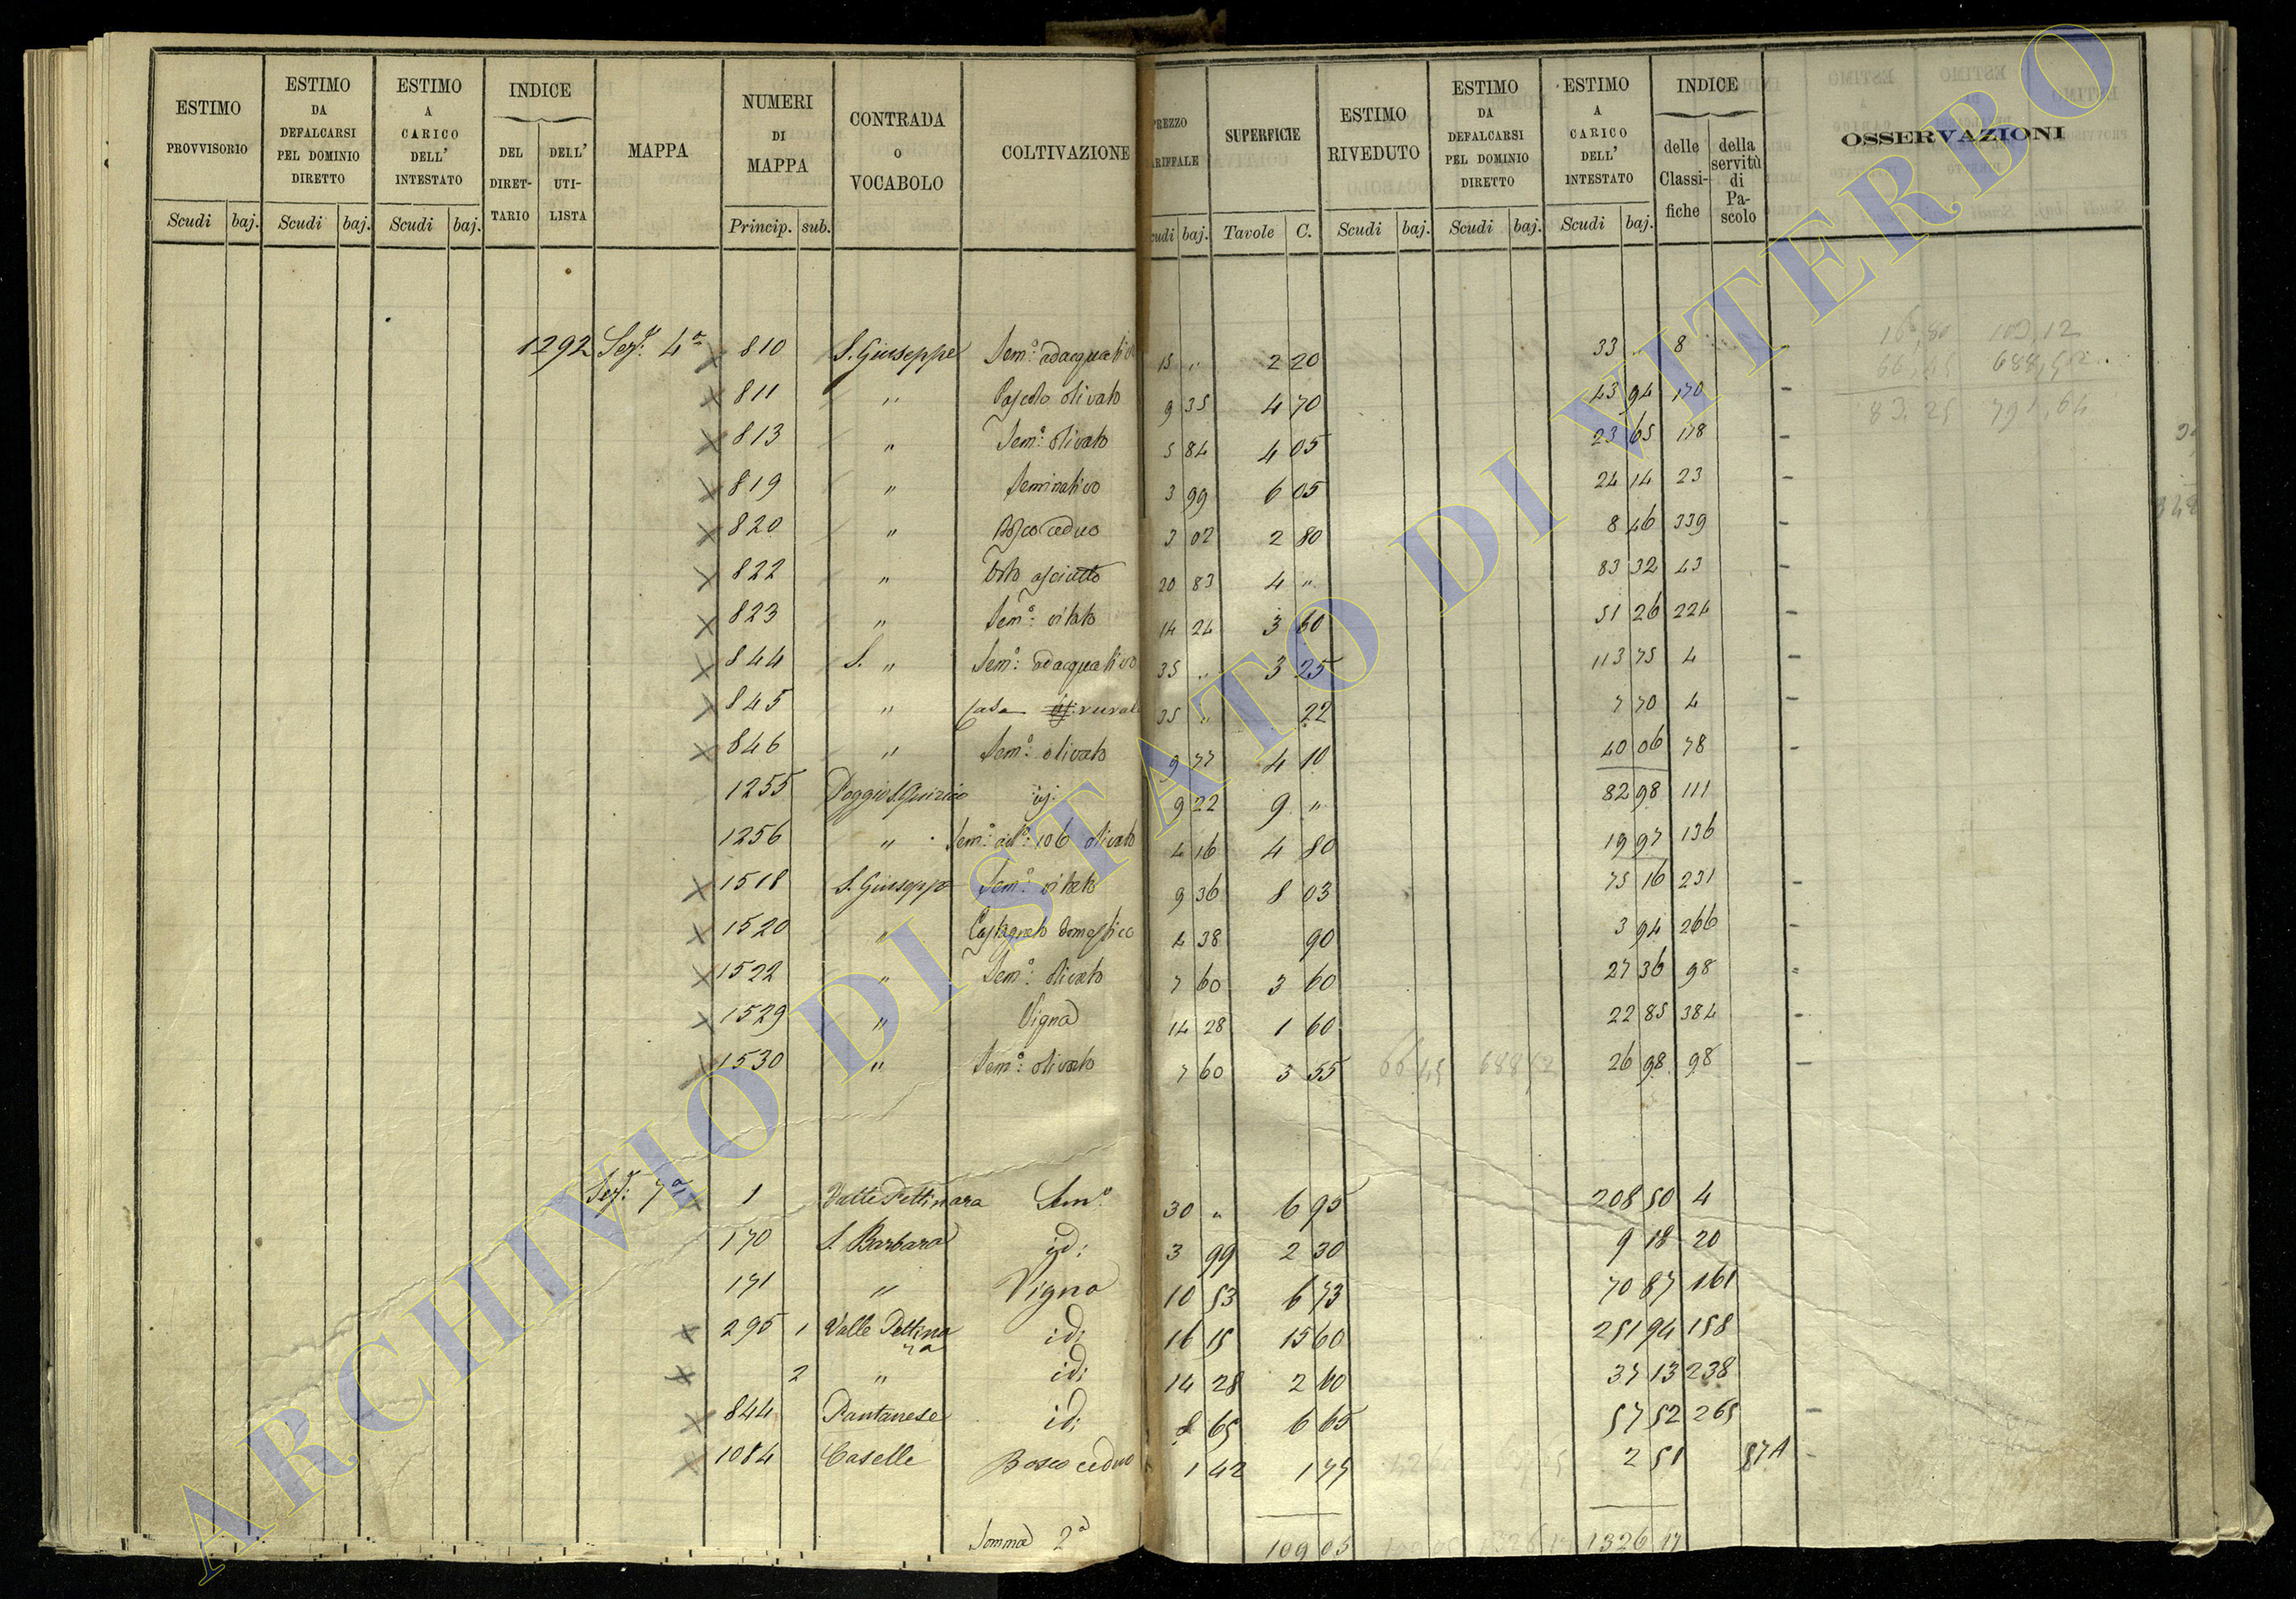 ESTIMO PROVVISORIO
Scudi baj.
ESTIMO DA DEFALCARSI PEL DOMINIO DIRETTO
Scudi baj.
ESTIMO A CARICO DELL' INTESTATO
Scudi baj.
INDICE
DEL DIRET- TARIO
DELL' UTI- LISTA
MAPPA
NUMERI DI MAPPA
Princip. sub.
CONTRADA O VOCABOLO
COLTIVAZIONE
PREZZO ARIFFALE
cudi baj.
SUPERFICIE
Tavole C.
ESTIMO RIVEDUTO
Scudi baj.
ESTIMO DA DEFALCARSI PEL DOMINIO DIRETTO
Scudi baj.
ESTIMO A CARICO DELL' INTESTATO
Scudi baj.
INDICE
delle Classi- fiche
della servitù di Pa- scolo
OSSERVAZIONI
1292 Sez.e 4a 810 S. Giuseppe Sem.o adacquativo 15 " 2 20 33 " 8
811 " Pascolo olivato 9 35 4 70 43 94 170 -
813 " Sem.o olivato 5 84 4 05 23 65 118 -
819 " Seminativo 3 99 6 05 24 14 23 -
820 " Bosco ceduo 3 02 2 80 8 46 339 -
822 " Orto asciutto 20 83 4 " 83 32 43 -
823 " Sem.o vitato 14 24 3 60 51 26 224 -
844 S. " Sem.o adacquativo 35 " 3 25 113 75 4 -
845 " Casa rurale 35 " 22 7 70 4
846 " Sem.o olivato 9 77 4 10 40 06 78 -
1255 Poggio S. Quirico id. 9 22 9 " 82 98 111
1256 " olivato 4 16 4 80 19 97 136
1518 S. Giuseppe Sem.o vitato 9 36 8 03 75 16 231 -
1520 " Castagneto domestico 4 38 90 3 94 266 -
1522 " Sem.o olivato 7 60 3 60 27 36 98 -
1529 " Vigna 14 28 1 60 22 85 384 -
1530 " Sem.o olivato 7 60 3 55 26 98 98 -
Sez.e 7a 1 Valle Pettinara Sem.o 30 " 6 95 208 50 4
170 S. Barbara id: 3 99 2 30 9 18 20
171 " Vigna 10 53 6 73 70 87 161
295 1 Valle Pettina ra id: 16 15 15 60 251 94 158
2 " id: 14 28 2 60 37 13 238
844 Pantanese id: 8 65 6 65 57 52 265 -
1084 Caselle Bosco ceduo 1 42 1 77 2 51 87A -
Somma 2a 109 05 1326 17
ARCHIVIO DI STATO DI VITERBO